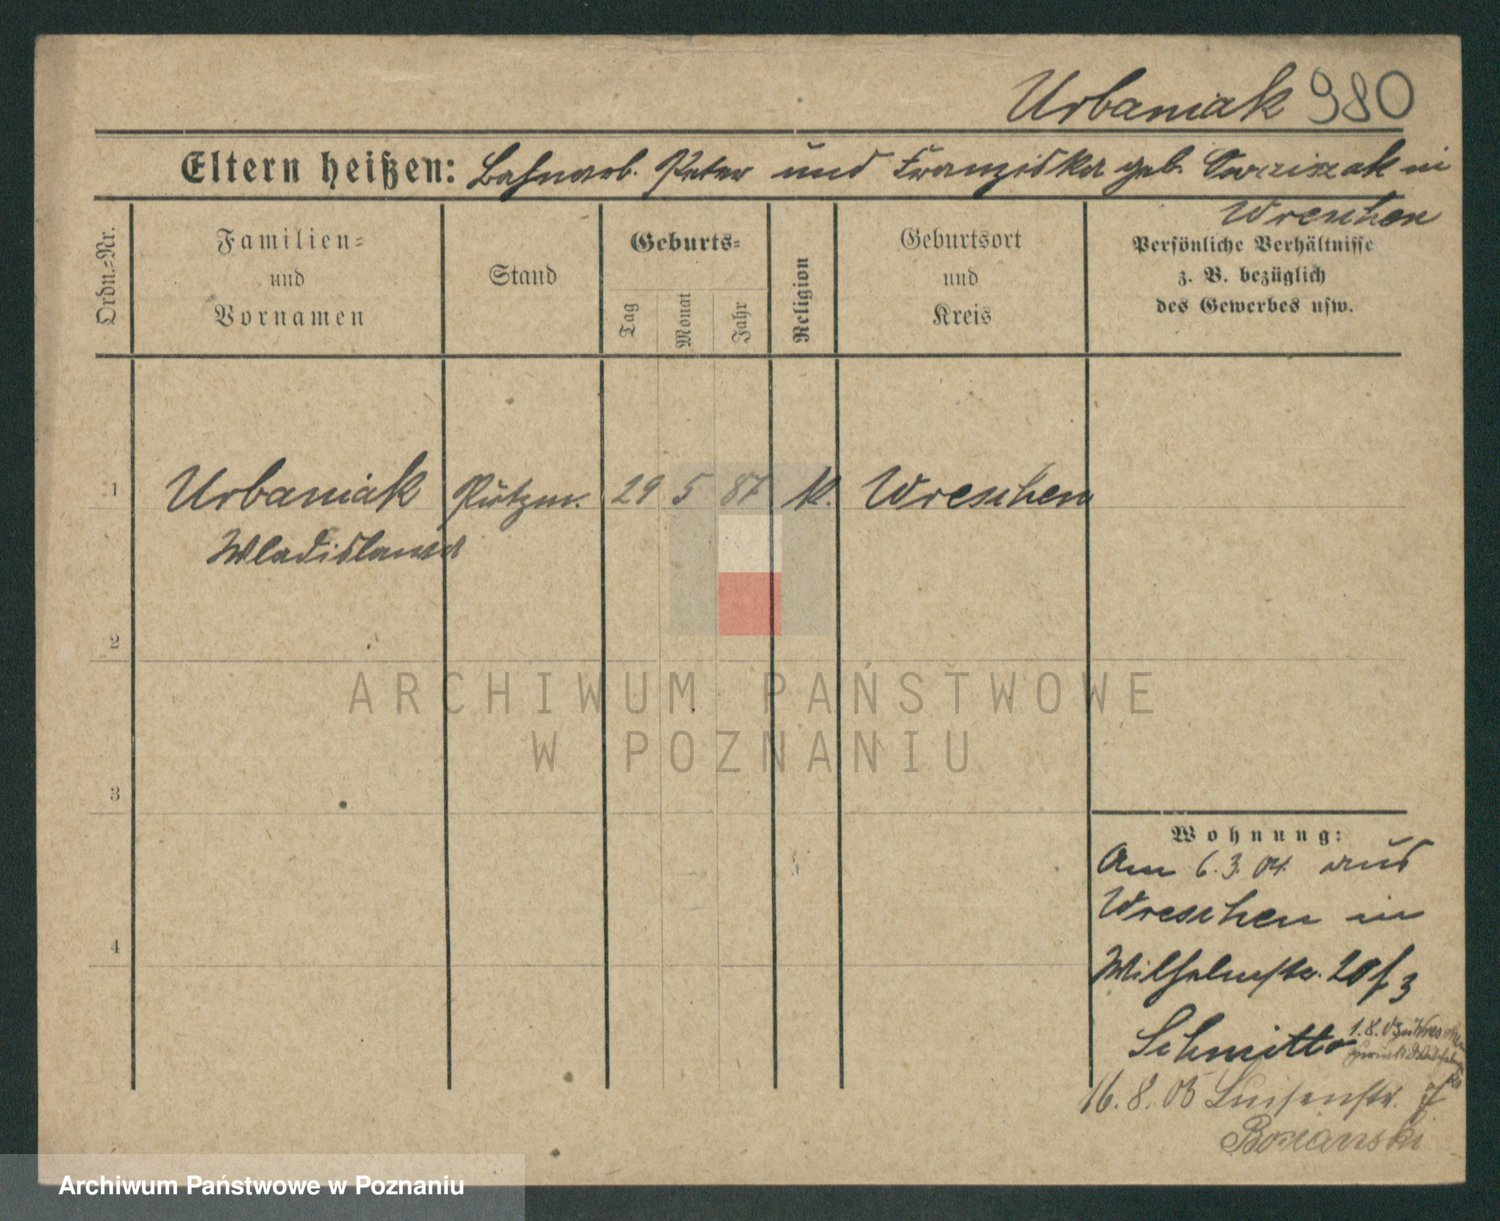 Urbaniak 980
Eltern heißen: Bahnarb. Peter und Franziska geb. in
Wreschen
Ordn.=Nr.
Familien=
und
Vornamen
Stand
Geburts=
Tag
Monat
Jahr
Religion
Geburtsort
und
Kreis
Persönliche Verhältnisse
z. B. bezüglich
des Gewerbes usw.
1 Urbaniak Putzm. 29 5 87 k. Wreschen
Wladislawa
2
3
4
ARCHIWUM PAŃSTWOWE
W POZNANIU
Wohnung:
Am 6.3.04. aus
Wreschen in
Wilhelmstr. 20 f 3
Schmitto
1.8.05
16.8.05 Luisenstr. 7
Bosianski
Archiwum Państwowe w Poznaniu